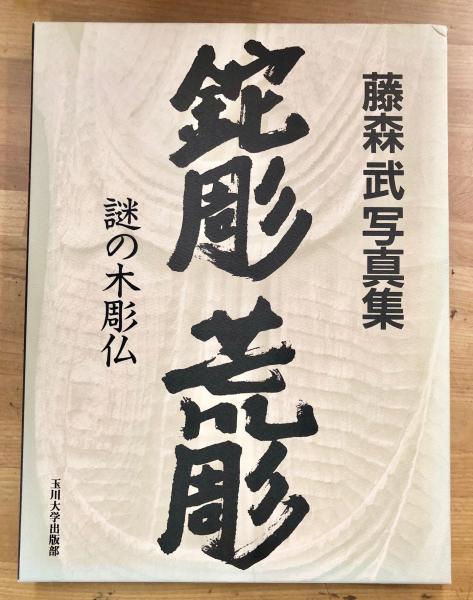 藤森 武 写真集
鉈彫 荒彫
謎の木彫仏
玉川大学出版部